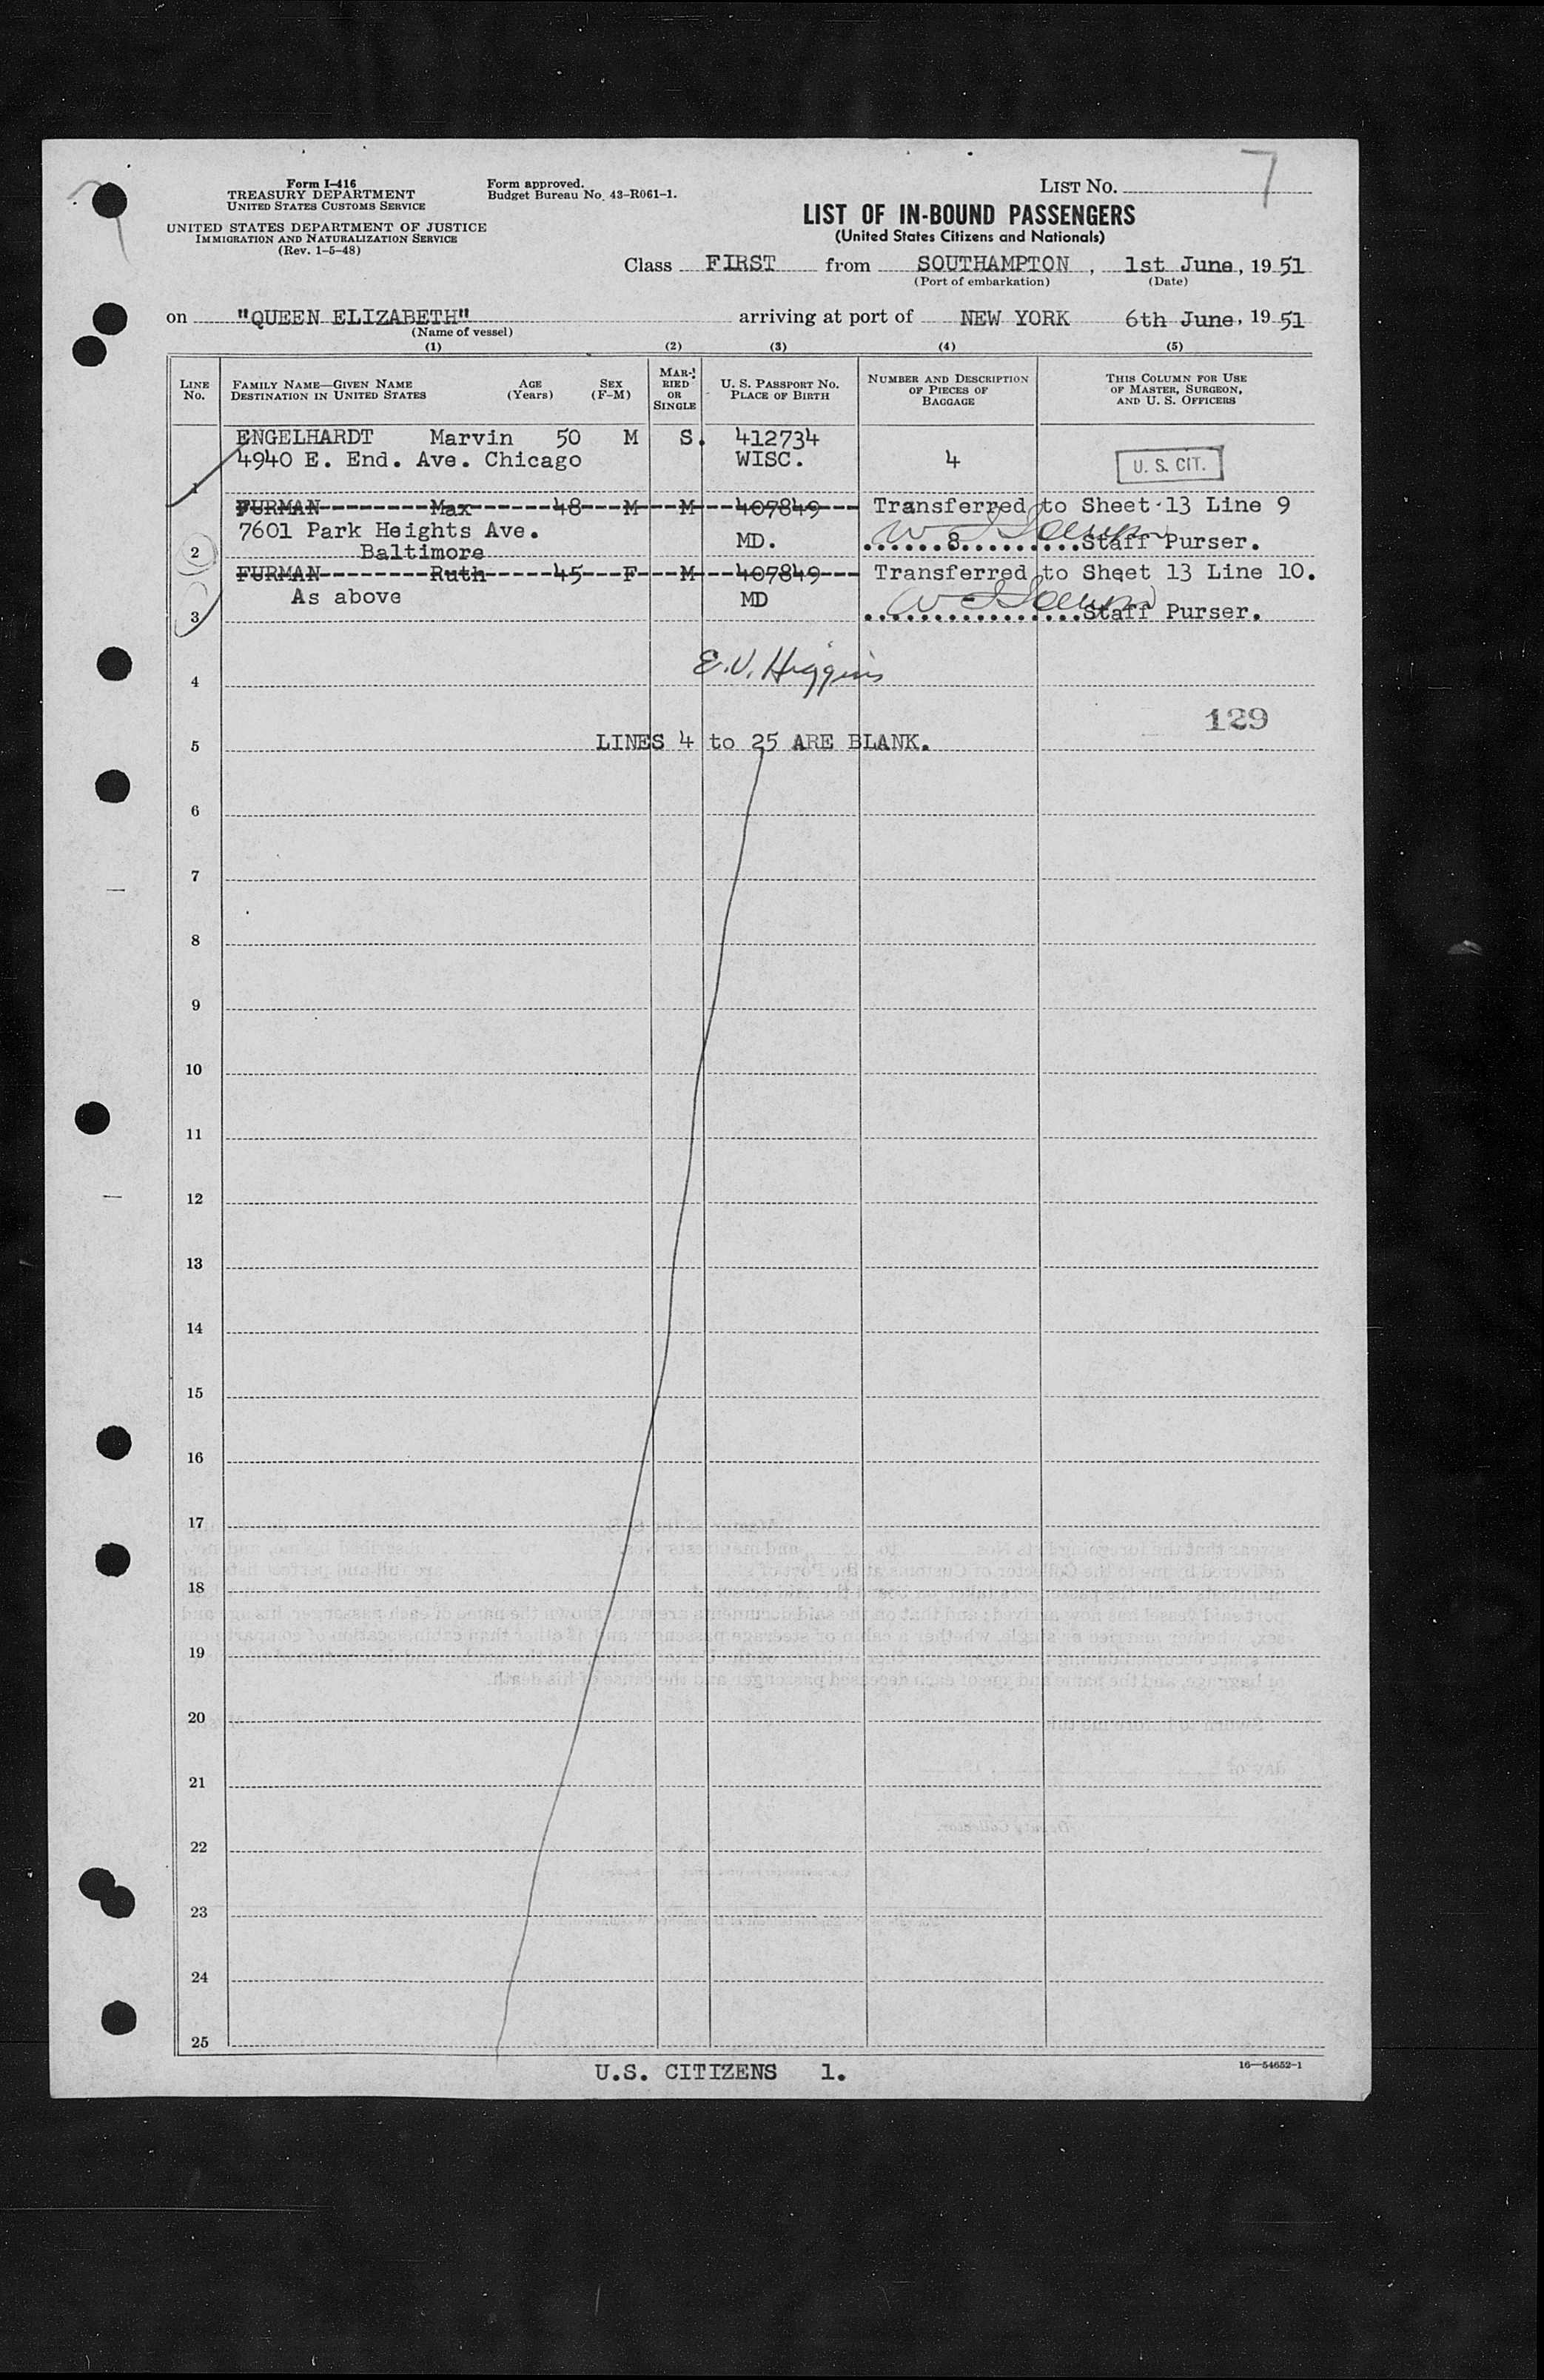 7
Form I-416
TREASURY DEPARTMENT
UNITED STATES CUSTOMS SERVICE
UNITED STATES DEPARTMENT OF JUSTICE
IMMIGRATION AND NATURALIZATION SERVICE
(Rev. 1-5-48)
Form approved.
Budget Bureau No. 43-R061-1.
LIST NO. 7
LIST OF IN-BOUND PASSENGERS
(United States Citizens and Nationals)
Class FIRST from SOUTHAMPTON, 1st June, 1951
(Port of embarkation) (Date)
on "QUEEN ELIZABETH" arriving at port of NEW YORK 6th June, 1951
(Name of vessel)
(1) (2) (3) (4) (5)
LINE NO. FAMILY NAME—GIVEN NAME DESTINATION IN UNITED STATES AGE (Years) SEX (F-M) MARRIED OR SINGLE U. S. PASSPORT NO. PLACE OF BIRTH NUMBER AND DESCRIPTION OF PIECES OF BAGGAGE THIS COLUMN FOR USE OF MASTER, SURGEON, AND U. S. OFFICERS
ENGELHARDT Marvin 50 M S. 412734
4940 E. End. Ave. Chicago WISC. 4 U. S. CIT.
1
FURMAN Max 48 M M 407849 Transferred to Sheet 13 Line 9
7601 Park Heights Ave. MD. 8 Staff Purser.
2 Baltimore
FURMAN Ruth 45 F M 407849 Transferred to Sheet 13 Line 10.
As above MD
3 Staff Purser.
E.V. Higgins
4
129
5 LINES 4 to 25 ARE BLANK.
6
7
8
9
10
11
12
13
14
15
16
17
18
19
20
21
22
23
24
25
U.S. CITIZENS 1.
16—54652-1